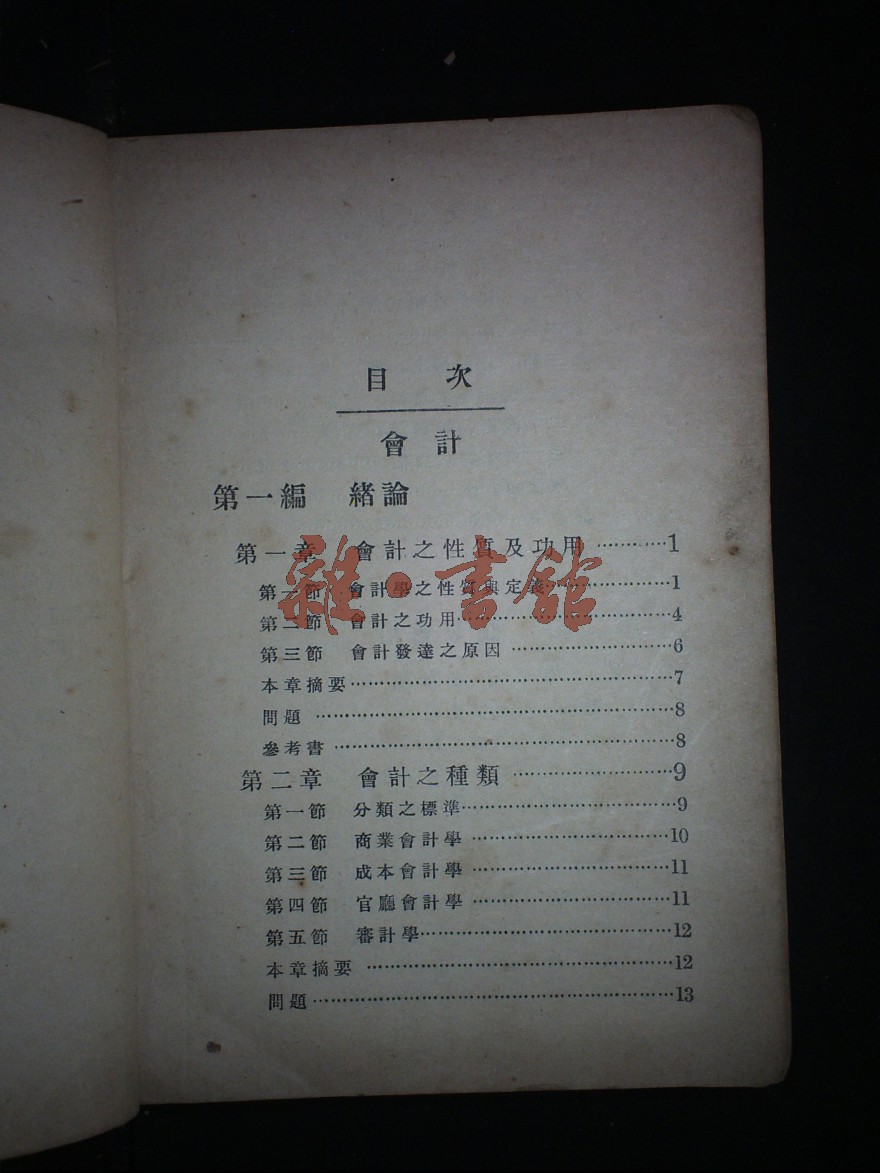 目 次
會計
第一編 緒論
第一章 會計之性質及功用…………1
第一節 會計學之性質與定義…………1
第二節 會計之功用…………4
第三節 會計發達之原因…………6
本章摘要…………7
問題…………8
參考書…………8
第二章 會計之種類…………9
第一節 分類之標準…………9
第二節 商業會計學…………10
第三節 成本會計學…………11
第四節 官廳會計學…………11
第五節 審計學…………12
本章摘要…………12
問題…………13
雜·書館